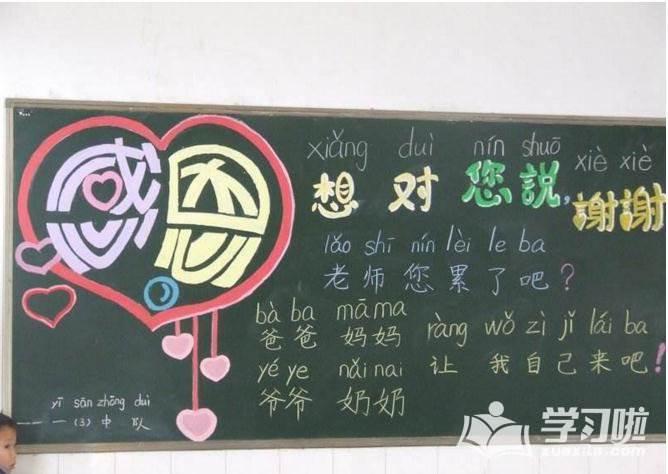 感恩
xiǎng duì nín shuō xiè xiè
想对您說,謝謝
lǎo shī nín lèi le ba
老师您累了吧？
bà ba mā ma
爸爸 妈妈
ràng wǒ zì jǐ lái ba
让我自己来吧！
yé ye nǎi nai
爷爷 奶奶
yī sān zhōng duì
一（3）中队
学习啦
xuexila.com